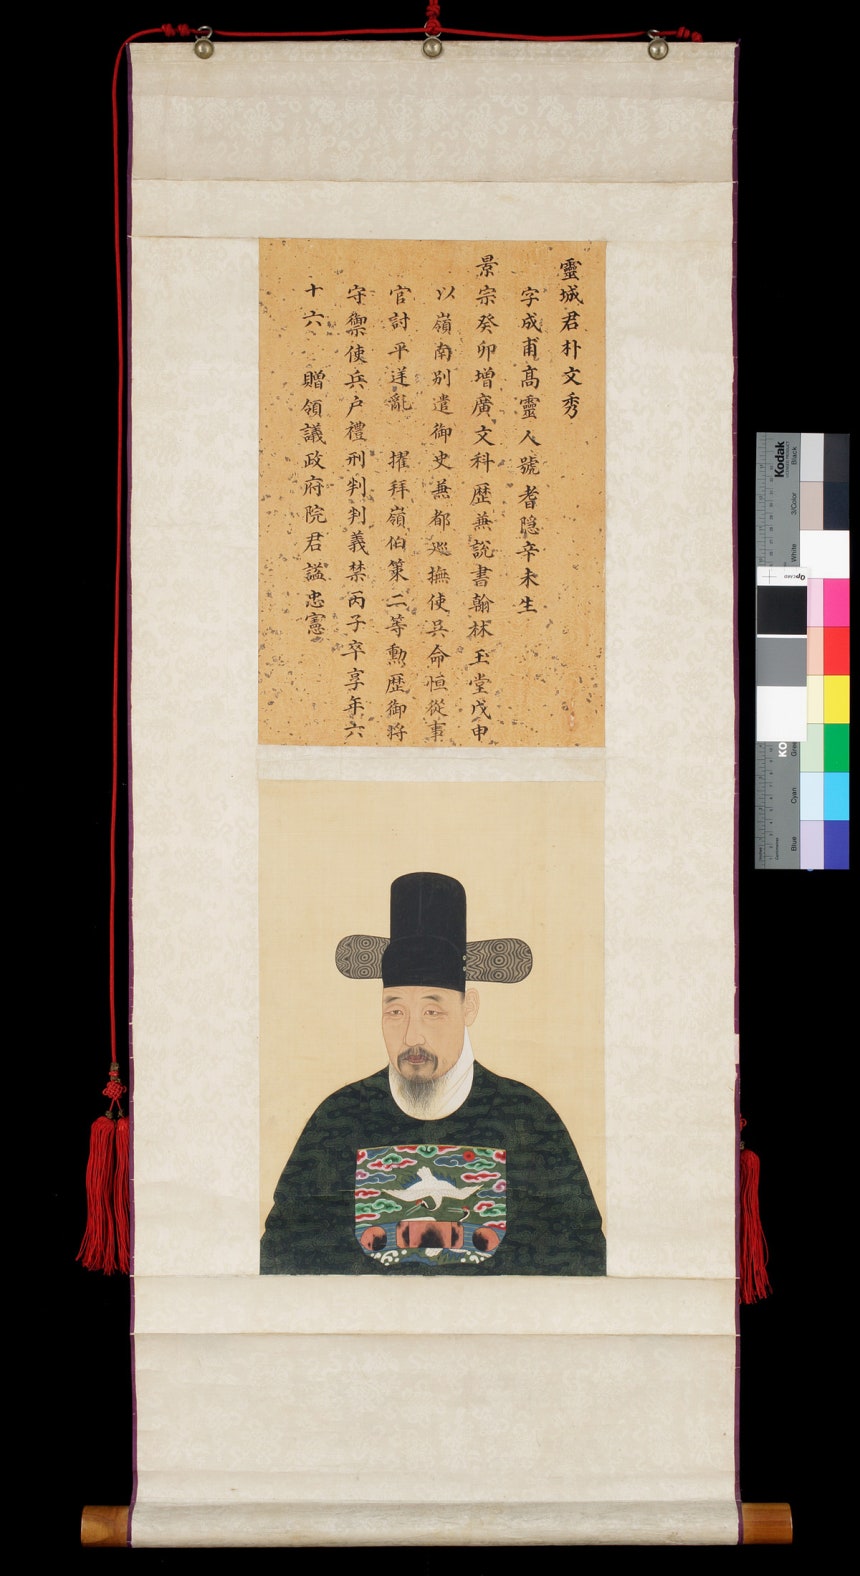 靈城君朴文秀
字成甫高靈人號耆隐辛未生
景宗癸卯增廣文科歷兼說書翰林玉堂戊申
以嶺南別遣御史兼都巡撫使吳命恒從事
官討平逆亂 擢拜嶺伯策二等勳歷御將
守禦使兵户禮刑判判義禁丙子卒享年六
十六 贈領議政府院君謚忠憲
Kodak
Black
3/Color
White
Green
Cyan
Blue